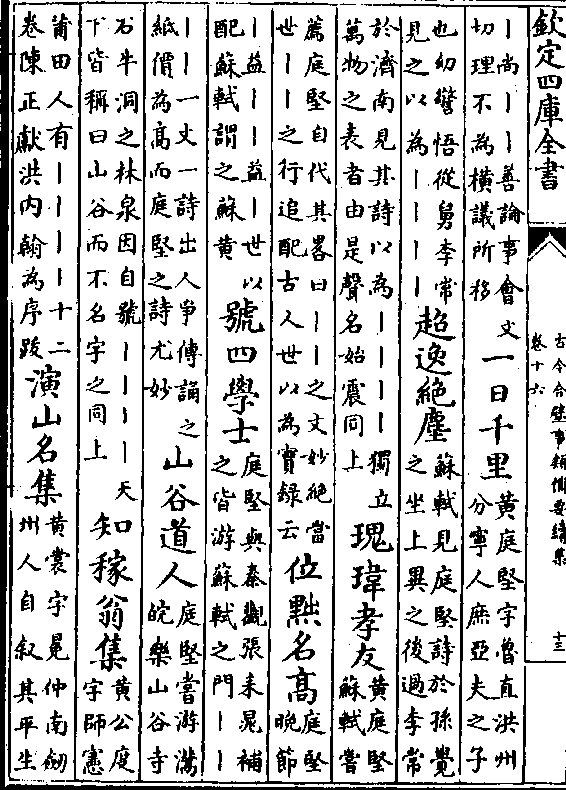 欽定四庫全書
古今合璧事類備要續集
卷十六
十三
丨尚丨丨善論事會文
切理不為横議所移
一日千里
黄庭堅字魯直洪州
分寧人庶亞夫之子
也幼警悟從舅李常
見之以為丨丨丨丨
超逸絶塵
蘇軾見庭堅詩於孫覺
之坐上異之後過李常
於濟南見其詩以為丨丨丨丨獨立
萬物之表者由是聲名始震同上
瑰瑋孝友
黄庭堅
蘇軾嘗
薦庭堅自代其畧曰丨丨之文妙絶當
世丨丨之行追配古人世以為實録云
位黙名髙
庭堅
晚節
丨益丨丨益丨世以
配蘇軾謂之蘇黄
號四學士
庭堅與秦觀張耒晁補
之皆游蘇軾之門丨丨
丨丨一文一詩出人爭傳誦之
紙價為髙而庭堅之詩尤妙
山谷道人
庭堅嘗游灊
皖樂山谷寺
石牛洞之林泉因自號丨丨丨丨天
下皆稱曰山谷而不名字之同上
知稼翁集
黄公度
字師憲
莆田人有丨丨丨丨十二
卷陳正獻洪内翰為序跋
演山名集
黄裳字冕仲南劒
州人自叙其平生